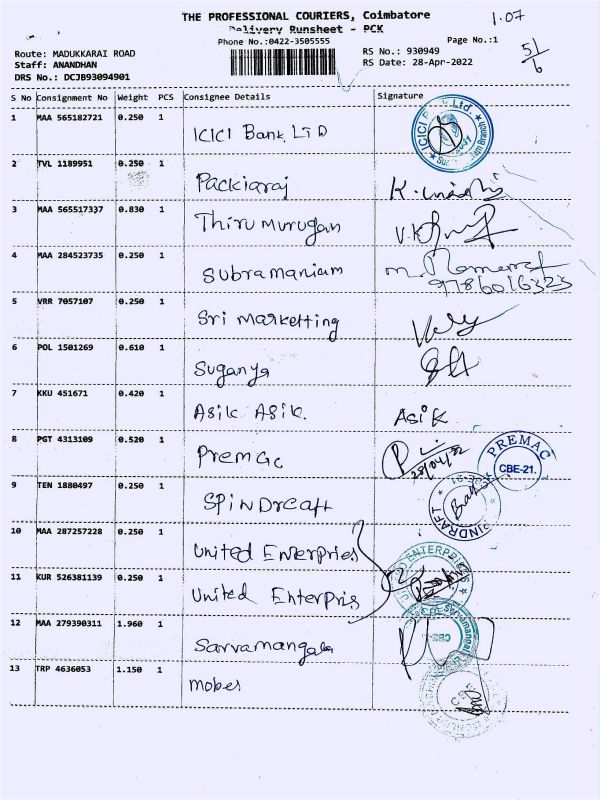 THE PROFESSIONAL COURIERS, Coimbatore
1.07
Delivery Runsheet - PCK
Phone No.:0422-3505555
Page No.:1
51/6
Route: MADUKKARAI ROAD
RS No.: 930949
Staff: ANANDHAN
RS Date: 28-Apr-2022
DRS No.: DCJB93094901
S No Consignment No Weight PCS Consignee Details Signature
1 MAA 565182721 0.250 1 ICICI Bank LTD
2 TVL 1189951 0.250 1 Packiaraj
3 MAA 565517337 0.830 1 Thirumurugan
4 MAA 284523735 0.250 1 Subramaniam
9786016323
5 VRR 7057107 0.250 1 Sri Marketting
6 POL 1501269 0.610 1 Suganya
7 KKU 451671 0.420 1 Asik Asik. Asik
8 PGT 4313109 0.520 1 Premac 28/04/22 PREMAC CBE-21.
9 TEN 1880497 0.250 1 SPINDRCAFT SPINDRAFT
10 MAA 287257228 0.250 1 United Enterpries
11 KUR 526381139 0.250 1 United Enterpris
12 MAA 279390311 1.960 1 Sarvamangala
13 TRP 4636053 1.150 1 mobes